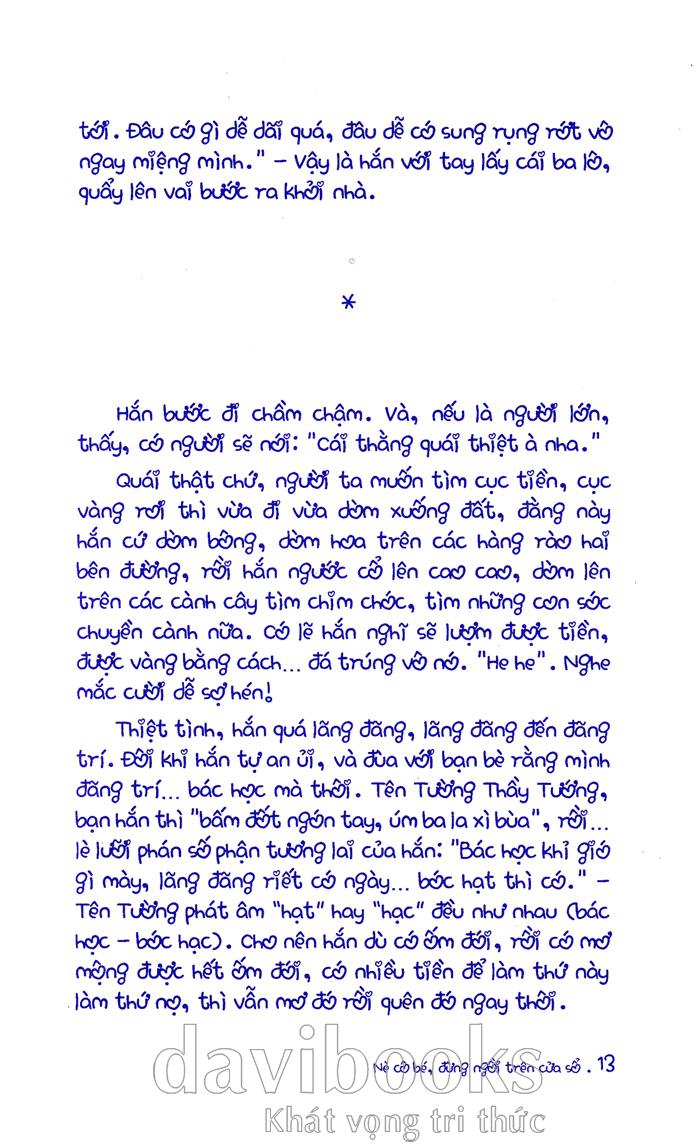 tới. Đâu có gì dễ dãi quá, đâu dễ có sung rụng rớt vô
ngay miệng mình." - Vậy là hắn với tay lấy cái ba lô,
quẩy lên vai bước ra khỏi nhà.
*
Hắn bước đi chầm chậm. Và, nếu là người lớn,
thấy, có người sẽ nói: "Cái thằng quái thiệt à nha."
Quái thật chứ, người ta muốn tìm cục tiền, cục
vàng rơi thì vừa đi vừa dòm xuống đất, đằng này
hắn cứ dòm bông, dòm hoa trên các hàng rào hai
bên đường, rồi hắn ngước cổ lên cao cao, dòm lên
trên các cành cây tìm chim chóc, tìm những con sóc
chuyền cành nữa. Có lẽ hắn nghĩ sẽ lượm được tiền,
được vàng bằng cách... đá trúng vô nó. "He he". Nghe
mắc cười dễ sợ hén!
Thiệt tình, hắn quá lãng đãng, lãng đãng đến đãng
trí. Đôi khi hắn tự an ủi, và đùa với bạn bè rằng mình
đãng trí... bác học mà thôi. Tên Tường Thầy Tướng,
bạn hắn thì "bấm đốt ngón tay, úm ba la xì bùa", rồi...
lè lưỡi phán số phận tương lai của hắn: "Bác học khỉ gió
gì mày, lãng đãng riết có ngày... bóc hạt thì có." -
Tên Tường phát âm "hạt" hay "hạc" đều như nhau (bác
học - bóc hạc). Cho nên hắn dù có ốm đói, rồi có mơ
mộng được hết ốm đói, có nhiều tiền để làm thứ này
làm thứ nọ, thì vẫn mơ đó rồi quên đó ngay thôi.
davibooks
Nè cô bé, đừng ngồi trên cửa sổ . 13
Khát vọng tri thức